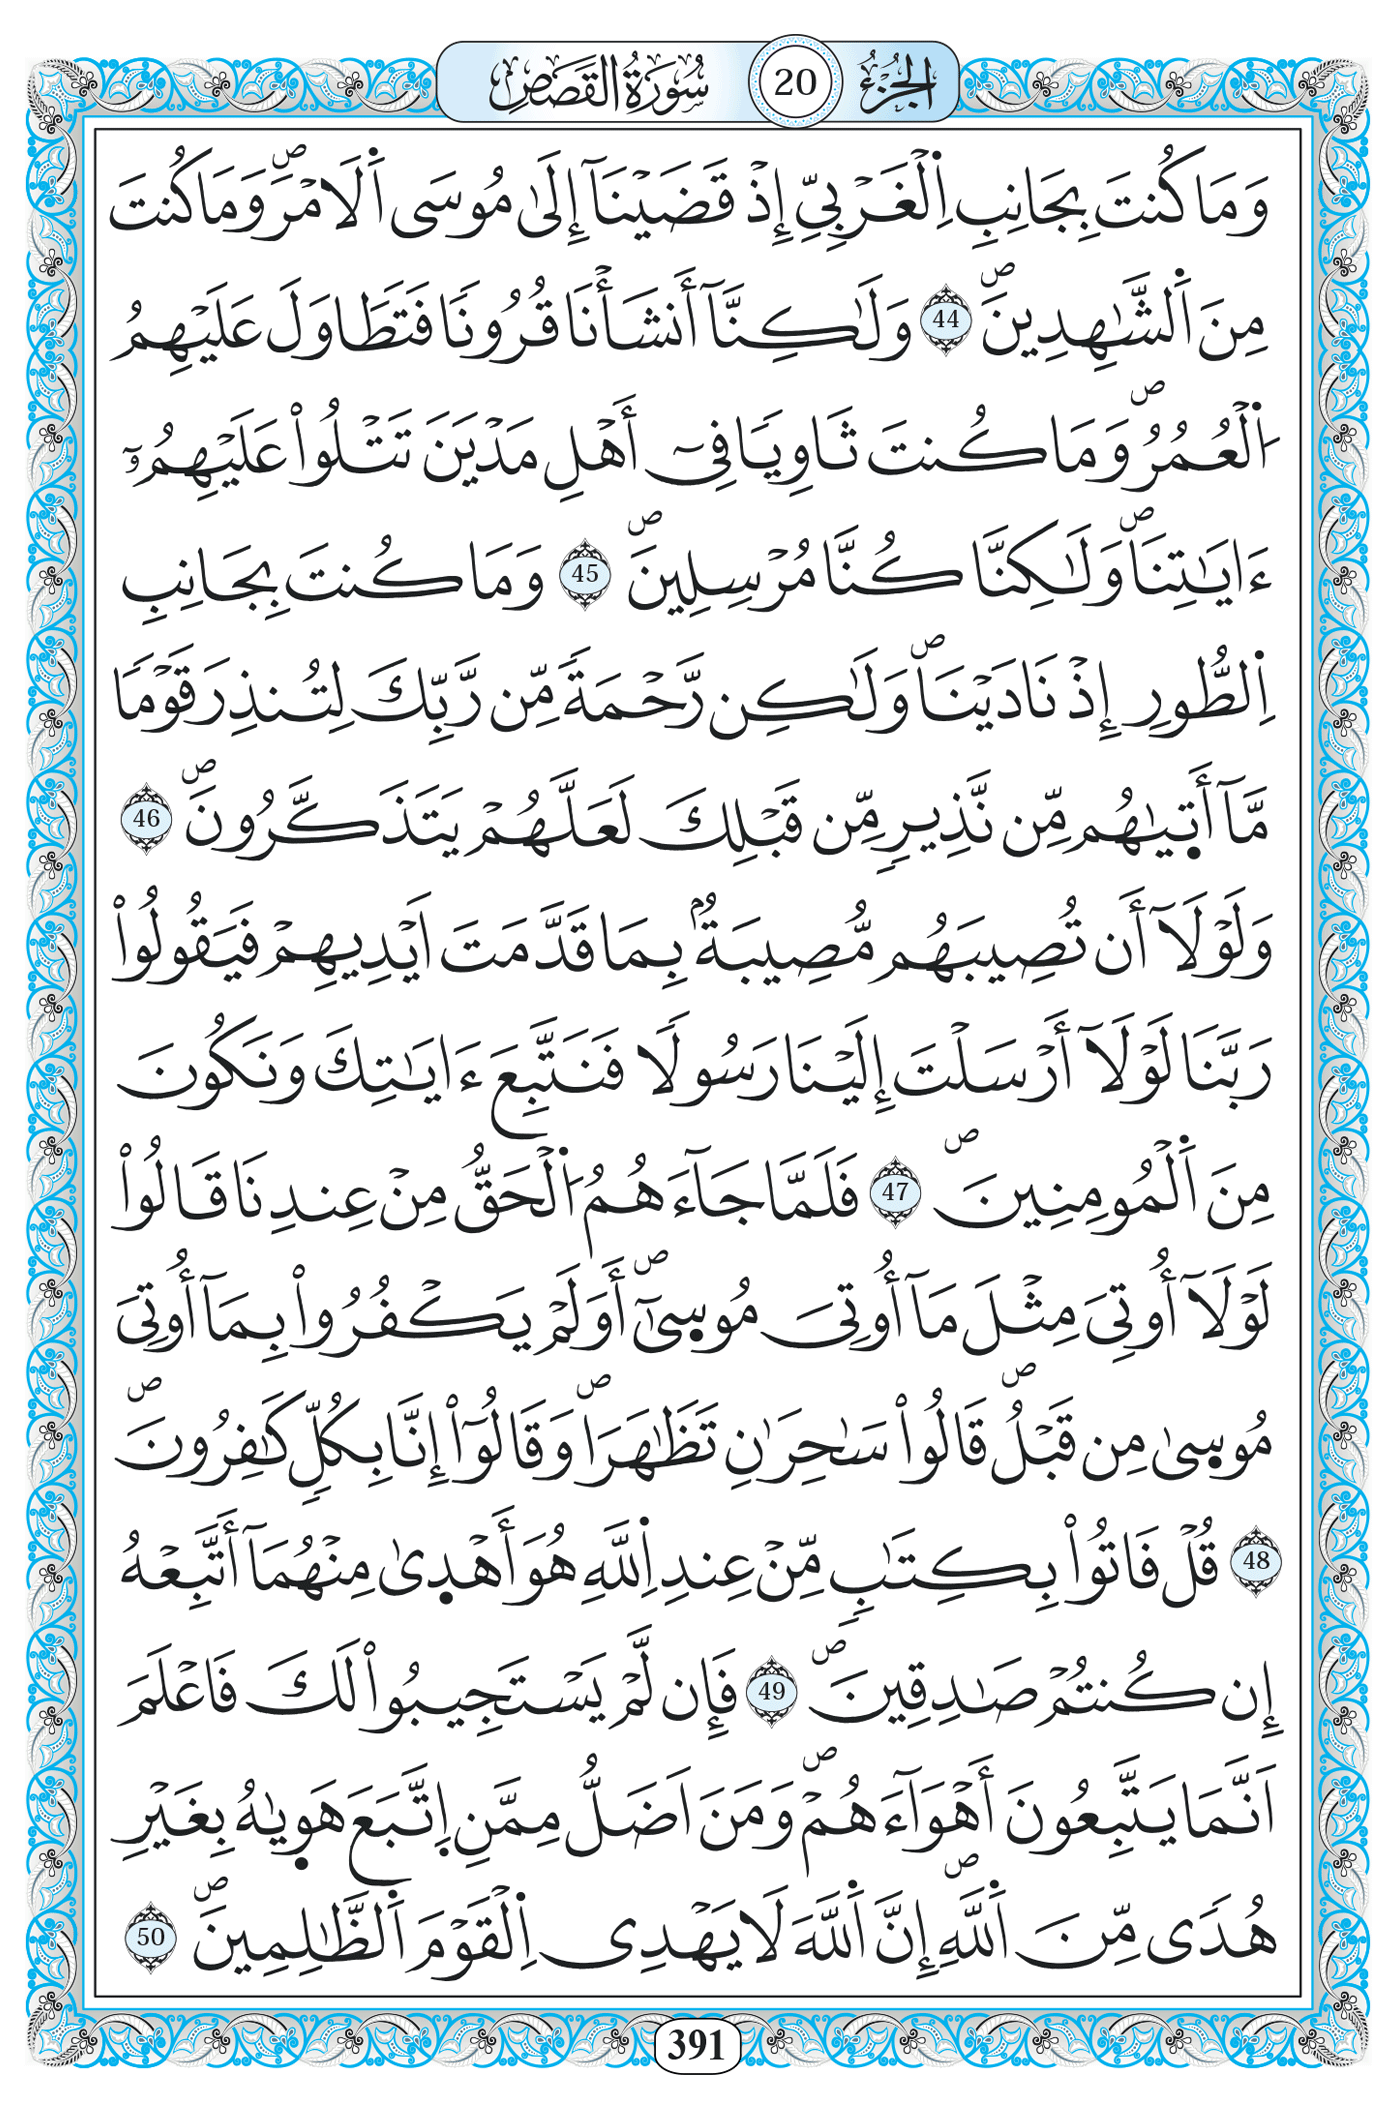 الجزء 20 سورة القصص
وَمَا كُنتَ بِجَانِبِ اِ۬لْغَرْبِيِّ إِذْ قَضَيْنَآ إِلَىٰ مُوسَى اَ۬لَامْرَۖ وَمَا كُنتَ
مِنَ اَ۬لشَّٰهِدِينَۖ 44 وَلَٰكِنَّآ أَنشَأْنَا قُرُوناٗ فَتَطَاوَلَ عَلَيْهِمُ
اُ۬لْعُمُرُۖ وَمَا كُنتَ ثَاوِياٗ فِےٓ أَهْلِ مَدْيَنَ تَتْلُواْ عَلَيْهِمُۥٓ
ءَايَٰتِنَاۖ وَلَٰكِنَّا كُنَّا مُرْسِلِينَۖ 45 وَمَا كُنتَ بِجَانِبِ
اِ۬لطُّورِ إِذْ نَادَيْنَاۖ وَلَٰكِن رَّحْمَةٗ مِّن رَّبِّكَ لِتُنذِرَ قَوْماٗ
مَّآ أَت۪يٰهُم مِّن نَّذِيرٖ مِّن قَبْلِكَ لَعَلَّهُمْ يَتَذَكَّرُونَۖ 46
وَلَوْلَآ أَن تُصِيبَهُم مُّصِيبَةُۢ بِمَا قَدَّمَتَ اَيْدِيهِمْ فَيَقُولُواْ
رَبَّنَا لَوْلَآ أَرْسَلْتَ إِلَيْنَا رَسُولاٗ فَنَتَّبِعَ ءَايَٰتِكَ وَنَكُونَ
مِنَ اَ۬لْمُومِنِينَۖ 47 فَلَمَّا جَآءَهُمُ اُ۬لْحَقُّ مِنْ عِندِنَا قَالُواْ
لَوْلَآ أُوتِيَ مِثْلَ مَآ أُوتِيَ مُوس۪ىٰٓۖ أَوَلَمْ يَكْفُرُواْ بِمَآ أُوتِيَ
مُوس۪ىٰ مِن قَبْلُۖ قَالُواْ سَٰحِرَٰنِ تَظَّٰهَرَاۖ وَقَالُوٓاْ إِنَّا بِكُلّٖ كَٰفِرُونَۖ
48 قُلْ فَاتُواْ بِكِتَٰبٖ مِّنْ عِندِ اِ۬للَّهِ هُوَ أَهْد۪ىٰ مِنْهُمَآ أَتَّبِعْهُ
إِن كُنتُمْ صَٰدِقِينَۖ 49 فَإِن لَّمْ يَسْتَجِيبُواْ لَكَ فَاعْلَمَ
اَنَّمَا يَتَّبِعُونَ أَهْوَآءَهُمْۖ وَمَنَ اَضَلُّ مِمَّنِ اِ۪تَّبَعَ هَو۪يٰهُ بِغَيْرِ
هُدىٗ مِّنَ اَ۬للَّهِۖ إِنَّ اَ۬للَّهَ لَا يَهْدِے اِ۬لْقَوْمَ اَ۬لظَّٰلِمِينَۖ 50
391